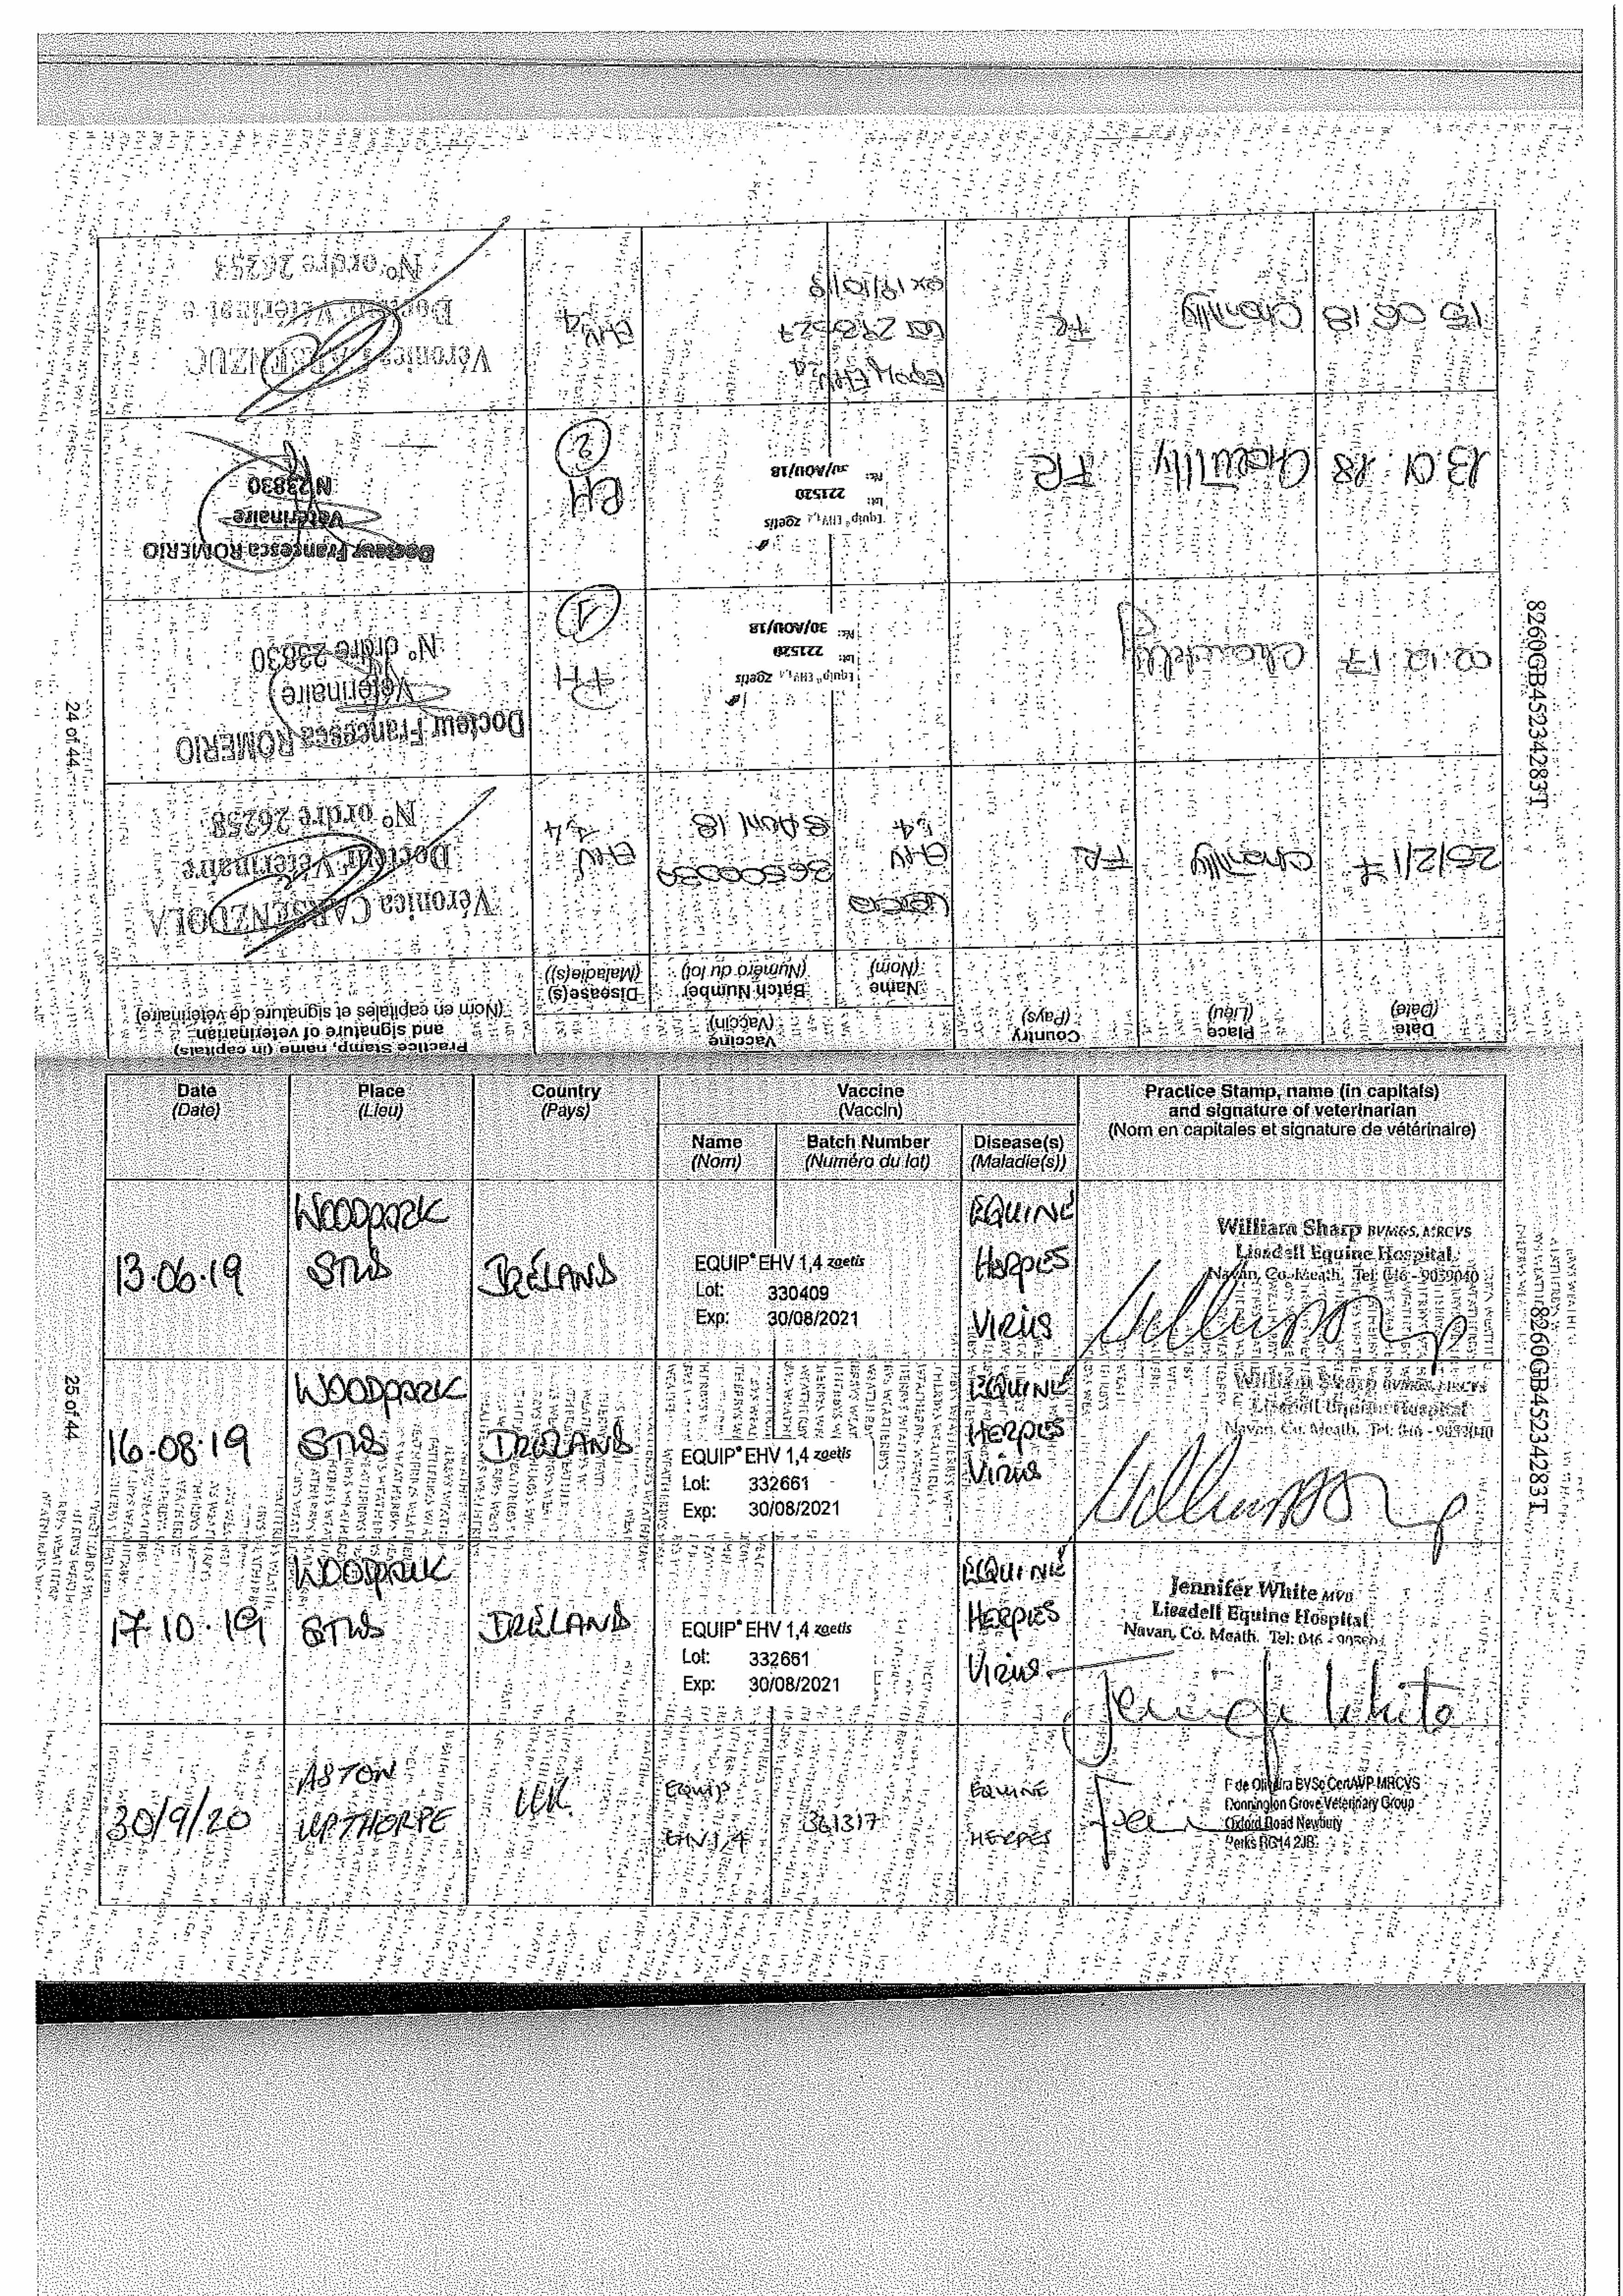 Date
(Date)
Place
(Lieu)
Country
(Pays)
Vaccine
(Vaccin)
Name
(Nom)
Batch Number
(Numéro du lot)
Disease(s)
(Maladie(s))
Practice Stamp, name (in capitals)
and signature of veterinarian
(Nom en capitales et signature de vétérinaire)
25/2/17
Chantilly
FR
EHV
1,4
EHV
1,4
Véronica CARSENZUOLA
Docteur Vétérinaire
N° ordre 26258
02.12.17
Chantilly
Equip® EHV 1,4 zoetis
Lot:
221520
30/AOU/18
RH
1
Docteur Francesca ROMERIO
Vétérinaire
N° ordre 23830
13.01.18
Chantilly
FR
Equip® EHV 1,4 zoetis
Lot:
221520
30/AOU/18
RH
2
Docteur Francesca ROMERIO
Vétérinaire
N°23830
15.06.18
Chantilly
FR
Equip EHV 1,4
EHV 1,4
Docteur Vétérinai e
N° ordre 26258
24 of 44
8260GB45234283T
Date
(Date)
Place
(Lieu)
Country
(Pays)
Vaccine
(Vaccin)
Name
(Nom)
Batch Number
(Numéro du lot)
Disease(s)
(Maladie(s))
Practice Stamp, name (in capitals)
and signature of veterinarian
(Nom en capitales et signature de vétérinaire)
13.06.19
WOODPARK
STUD
IRELAND
EQUIP® EHV 1,4 zoetis
Lot: 330409
Exp: 30/08/2021
EQUINE
HERPES
VIRUS
William Sharp BVM&S, MRCVS
Lisadell Equine Hospital
Navan, Co. Meath. Tel: 046 - 9059040
16.08.19
WOODPARK
STUD
IRELAND
EQUIP® EHV 1,4 zoetis
Lot: 332661
Exp: 30/08/2021
EQUINE
HERPES
VIRUS
William Sharp BVM&S, MRCVS
Lisadell Equine Hospital
Navan, Co. Meath. Tel: 046 - 9059040
17.10.19
WOODPARK
STUD
IRELAND
EQUIP® EHV 1,4 zoetis
Lot: 332661
Exp: 30/08/2021
EQUINE
HERPES
VIRUS
Jennifer White MVB
Lisadell Equine Hospital
Navan, Co. Meath. Tel: 046
Jennifer White
30/9/20
ASTON
UPTHORPE
UK
EQUIP
EHV 1,4
361317
EQUINE
HERPES
F de Oliveira BVSc CertAVP MRCVS
Donnington Grove Veterinary Group
Oxford Road Newbury
Berks RG14 2JB
25 of 44
8260GB45234283T